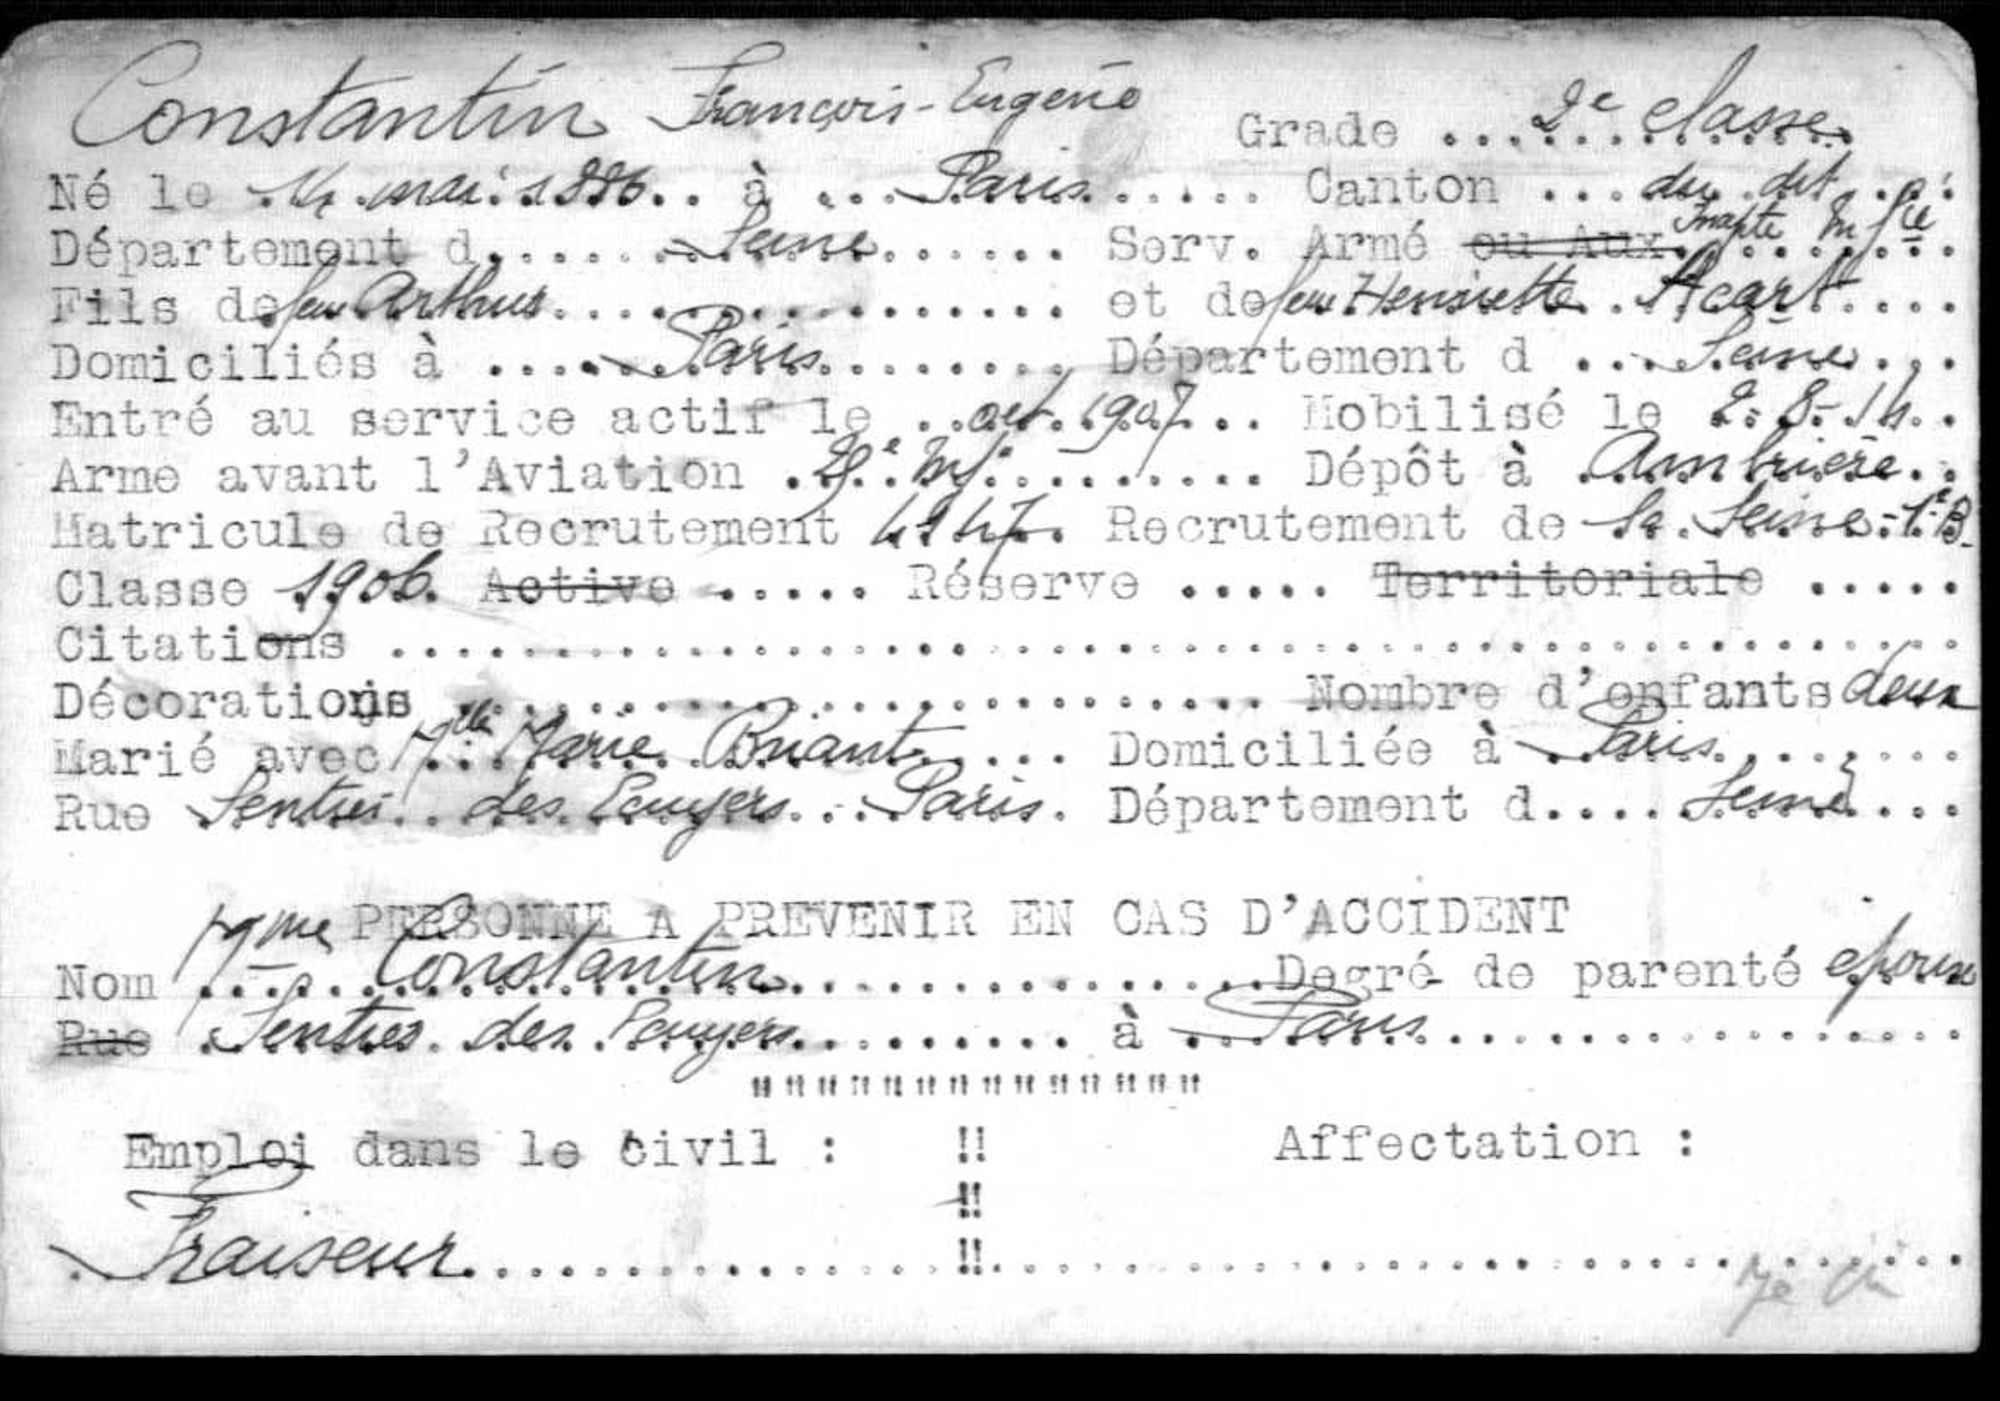 Constantin François-Eugène Grade ... 2e classe
Né le 14 mai 1886 .. à ... Paris ...... Canton ... du dit ..
Département d..... Seine ...... Serv. Armé ou Aux. Inapte Inf ie
Fils de feu Arthur ............ et de feu Henriette Acart ....
Domiciliés à ..... Paris ........ Département d .... Seine ...
Entré au service actif le .. oct. 1907 .. Mobilisé le 2.8.14 .
Arme avant l'Aviation . Inf. ......... Dépôt à . Ambrière ..
Matricule de Recrutement 4947. Recrutement de la Seine 1e B.
Classe 1906. Active ..... Réserve ..... Territoriale .....
Citations ................................................
Décorations ......................... Nombre d'enfants deux
Marié avec Mlle Marie Briant .... Domiciliée à . Paris ........
Rue Sentier des Ecuyers ... Paris. Département d.... Seine ...
PERSONNE A PREVENIR EN CAS D'ACCIDENT
Nom Mme Constantin ............... Degré de parenté épouse
Rue Sentier des Ecuyers ......... à .. Paris .................
""""""""""""""
Emploi dans le civil : !! Affectation :
!!
Fraiseur .............. !! ..............................